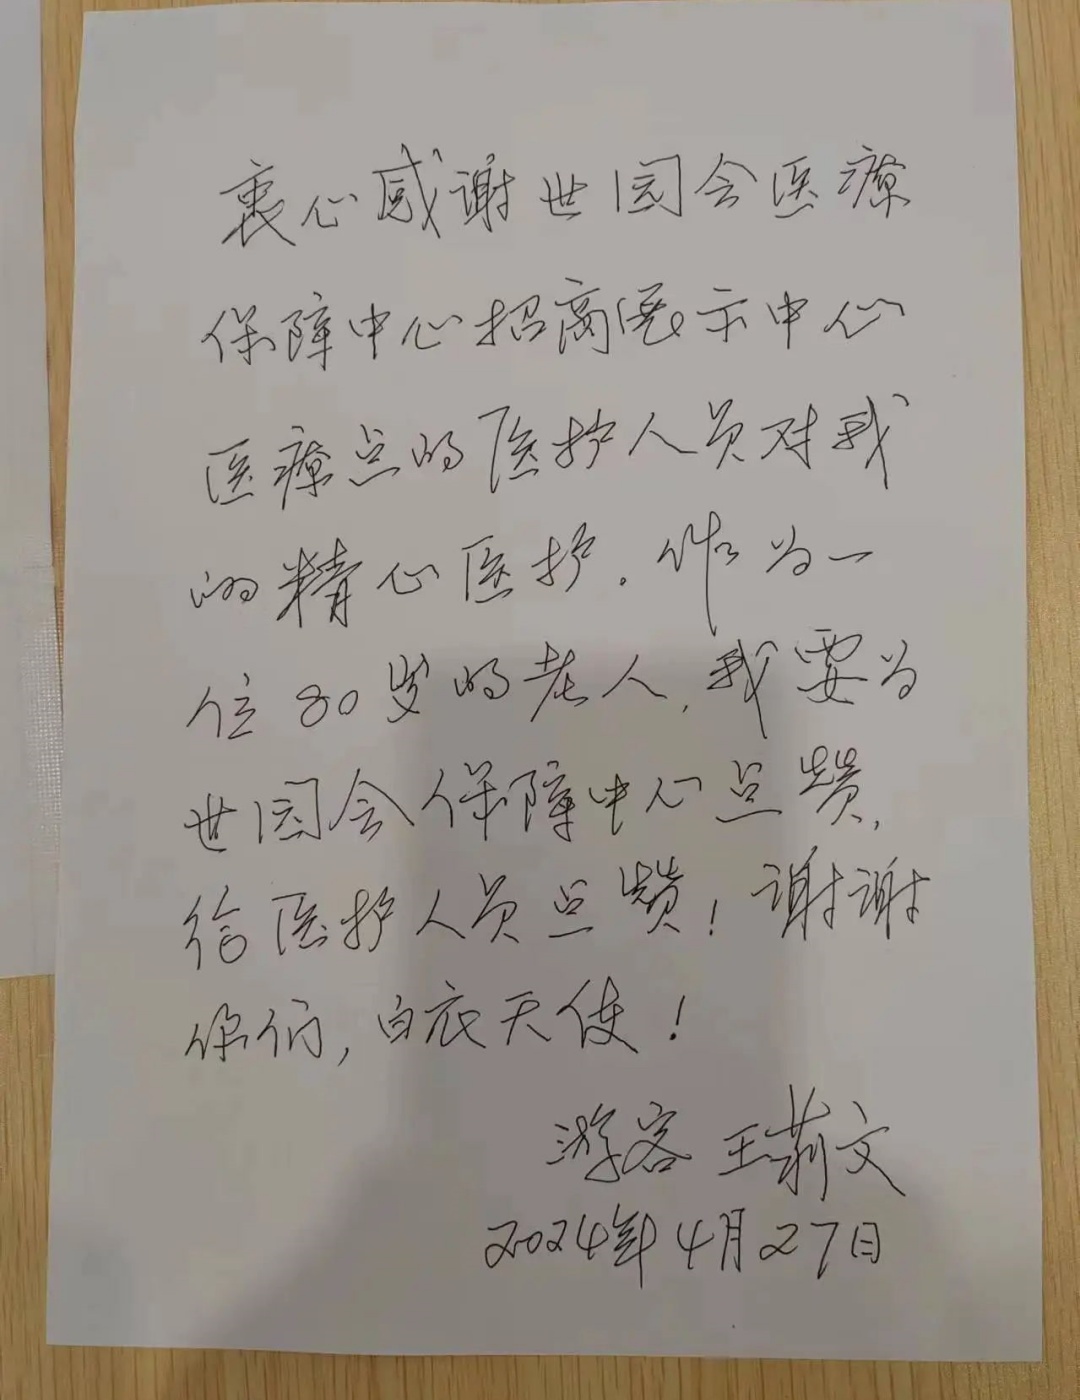 衷心感谢世园会医疗
保障中心招商展示中心
医疗点的医护人员对我
的精心医护。作为一
位80岁的老人,我要为
世园会保障中心点赞,
给医护人员点赞!谢谢
你们,白衣天使!
游客 王莉文
2024年4月27日